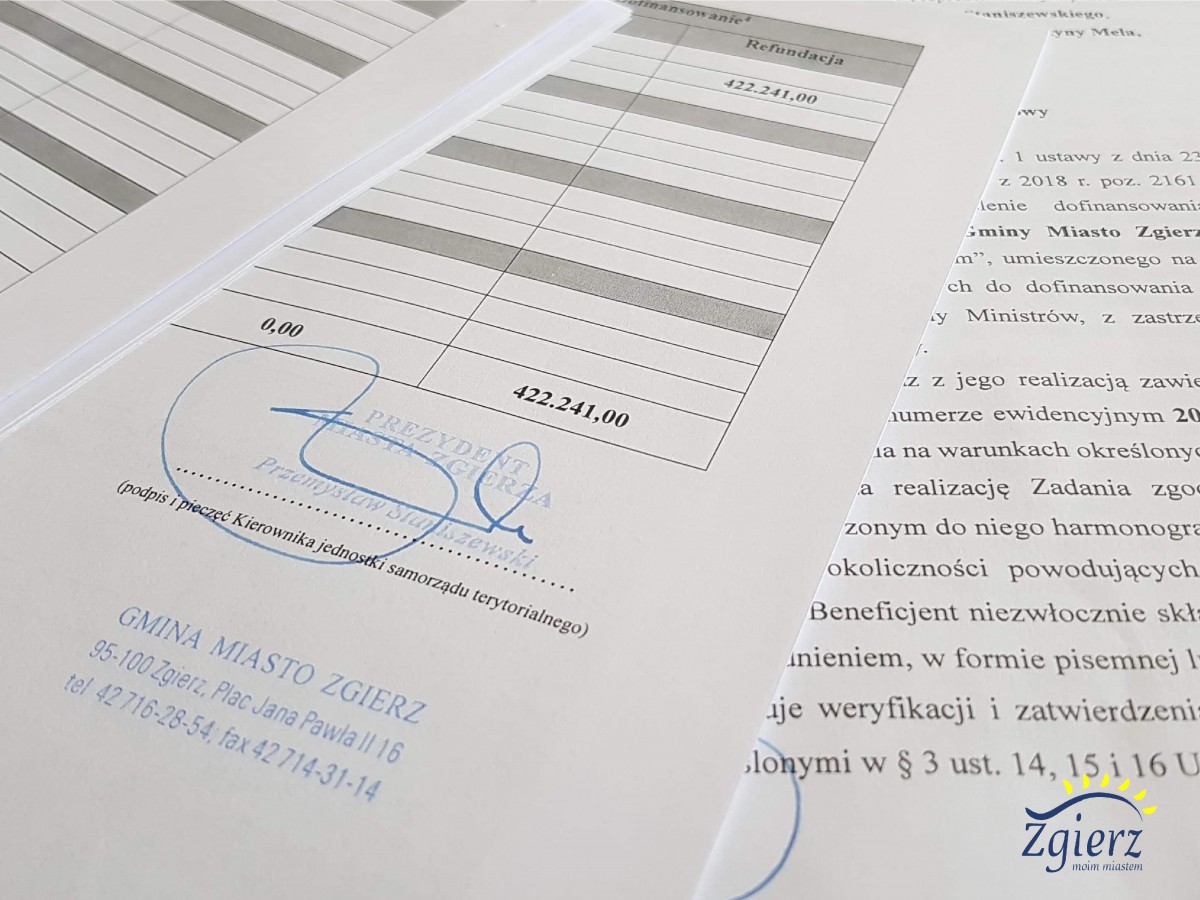 Dofinansowanie⁴
Refundacja
422.241,00
0,00
422.241,00
PREZYDENT
MIASTA ZGIERZA
Przemysław Staniszewski
(podpis i pieczęć Kierownika jednostki samorządu terytorialnego)
GMINA MIASTO ZGIERZ
95-100 Zgierz, Plac Jana Pawła II 16
tel 42 716-28-54; fax 42 714-31-14
Staniszewskiego,
Mela,
1 ustawy z dnia 23
z 2018 r. poz. 2161
dofinansowania
Gminy Miasto Zgierz
m”, umieszczonego na
ch do dofinansowania
Ministrów, z zastrze
z jego realizacją zawie
numerze ewidencyjnym 20
na warunkach określonyc
realizację Zadania zgo
zonym do niego harmonogra
okoliczności powodujących
Beneficjent niezwłocznie skła
nieniem, w formie pisemnej l
uje weryfikacji i zatwierdzeni
ślonymi w § 3 ust. 14, 15 i 16 U
Zgierz
moim miastem